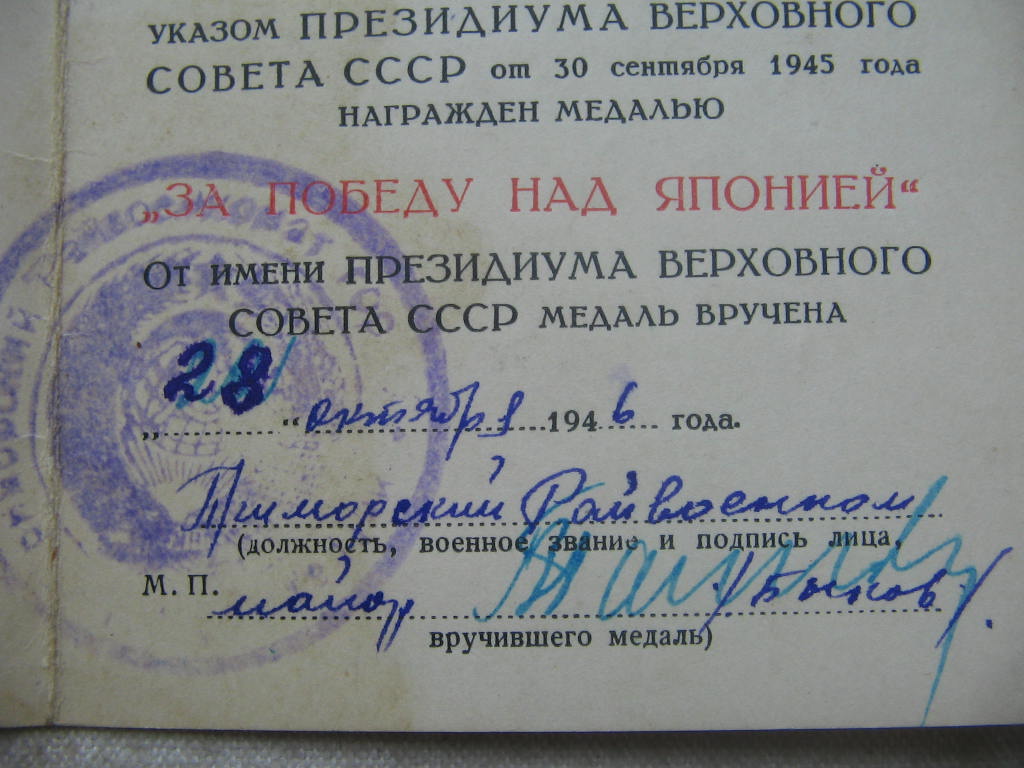 УКАЗОМ ПРЕЗИДИУМА ВЕРХОВНОГО
СОВЕТА СССР от 30 сентября 1945 года
НАГРАЖДЕН МЕДАЛЬЮ
„ЗА ПОБЕДУ НАД ЯПОНИЕЙ“
ОТ ИМЕНИ ПРЕЗИДИУМА ВЕРХОВНОГО
СОВЕТА СССР МЕДАЛЬ ВРУЧЕНА
„28“ октября 1946 года.
Райвоенком
(должность, военное звание и подпись лица,
М. П. майор /Быков/.
вручившего медаль)